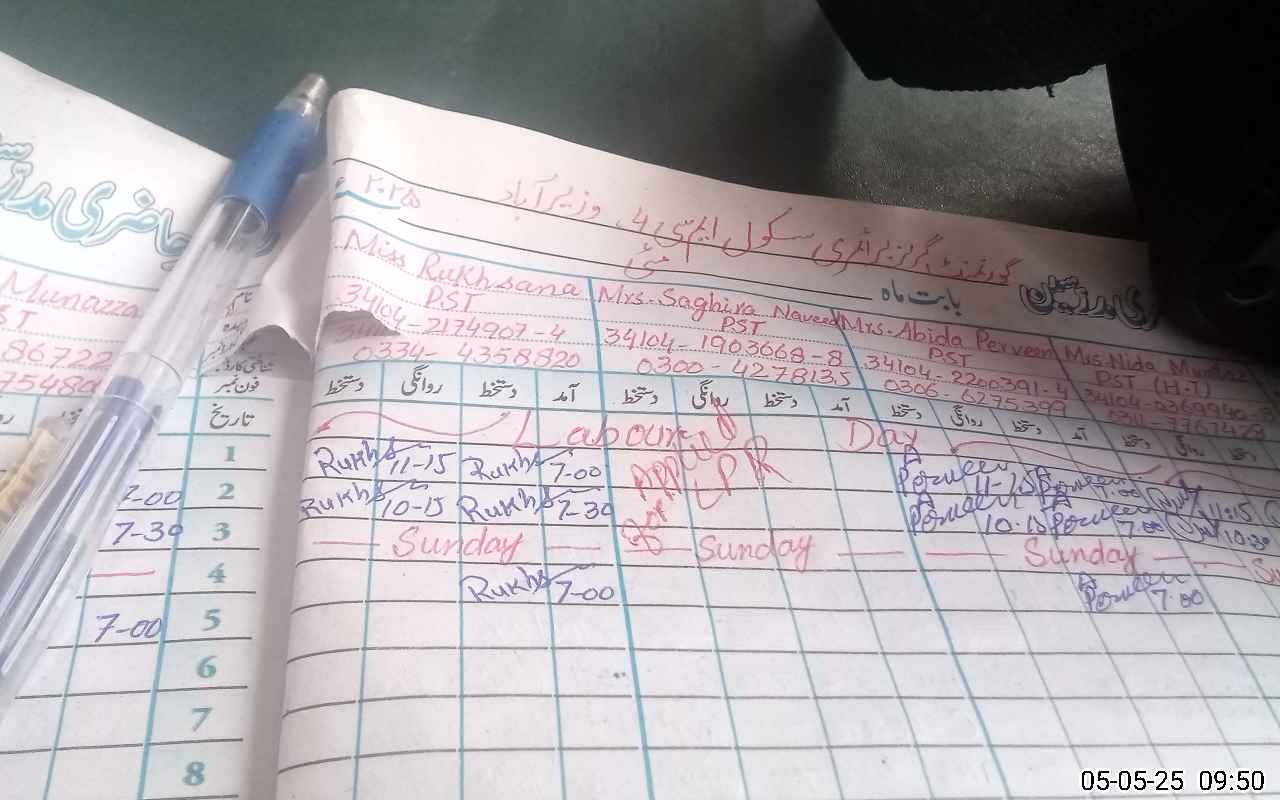 حاضری مدرسین
۲۰۲۵
گورنمنٹ گرلز پرائمری سکول ایم سی 4، وزیرآباد
بابت ماہ مئی
Munazza
Miss Rukhsana
PST
34104-2174907-4
0334-4358820
Mrs. Saghira Naveed
PST
34104-1903668-8
0300-4278135
Mrs. Abida Perveen
PST
34104-2200391-4
0306-6275399
Mrs. Nida
PST (H.T)
86722
فون نمبر
تاریخ
دستخط روانگی دستخط آمد دستخط روانگی دستخط آمد دستخط روانگی دستخط آمد دستخط روانگی دستخط
1 Labour Day
2 7-00 Rukhs 11-15 Rukhs 7-00 Applied for LPR Perveen 11-15 Perveen 7.00 11:15
3 7-30 Rukhs 10-15 Rukhs 7-30 Perveen 10.15 Perveen 7.00 10.30
4 Sunday Sunday Sunday Su
5 7-00 Rukhs 7-00 Perveen 7.00
6
7
8
05-05-25 09:50